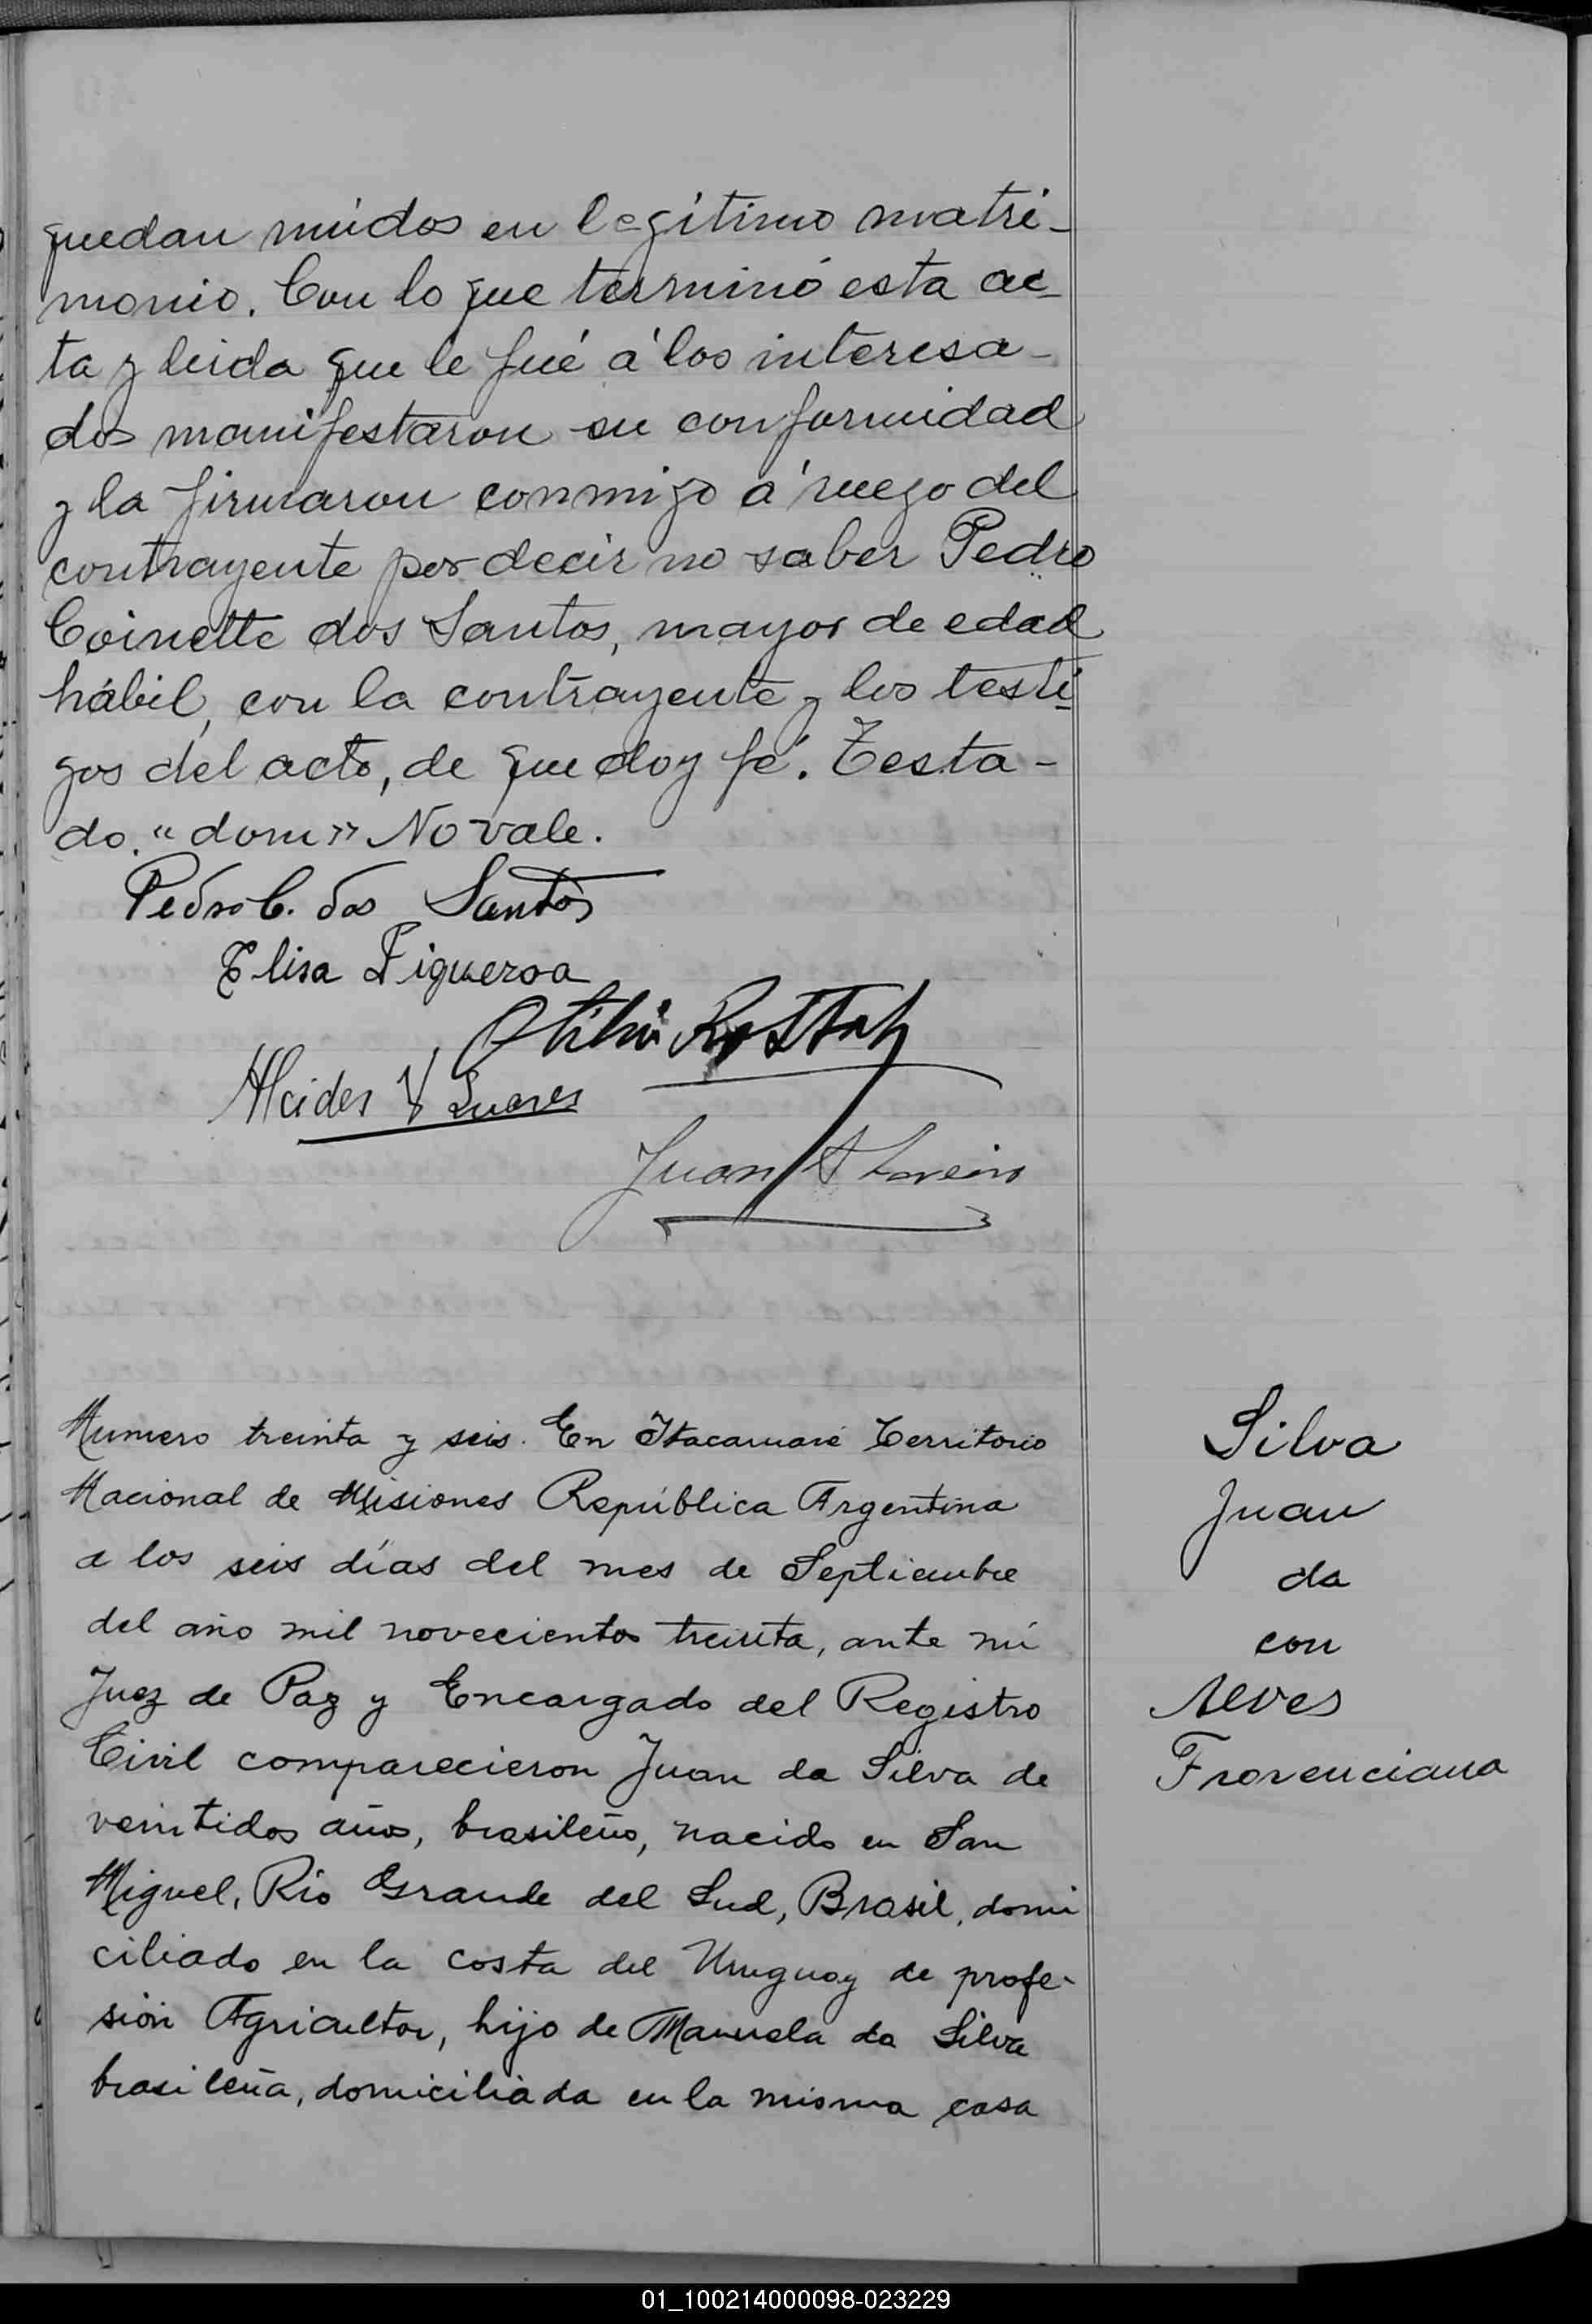 quedan unidos en legítimo matri-
monio. Con lo que terminó esta ac-
ta y leida que le fué á los interesa-
dos manifestaron su conformidad
y la firmaron conmigo á ruego del
contrayente por decir no saber Pedro
Coinette dos Santos, mayor de edad
hábil, con la contrayente y los testi-
gos del acto, de que doy fé. Testa-
do. "dom" No vale.
Pedro C. dos Santos
Elisa Figueroa
Otilio
Alcides V Suares
Juan A
Numero treinta y seis. En Itacaruaré Territorio
Nacional de Misiones República Argentina
a los seis días del mes de Septiembre
del año mil novecientos treinta, ante mí
Juez de Paz y Encargado del Registro
Civil comparecieron Juan da Silva de
veintidos años, brasileño, nacido en San
Miguel, Rio Grande del Sud, Brasil, domi
ciliado en la costa del Uruguay de profe-
sión Agricultor, hijo de Manuela da Silva
brasileña, domiciliada en la misma casa
Silva
Juan
da
con
Alves
Frovenciana
01_100214000098-023229